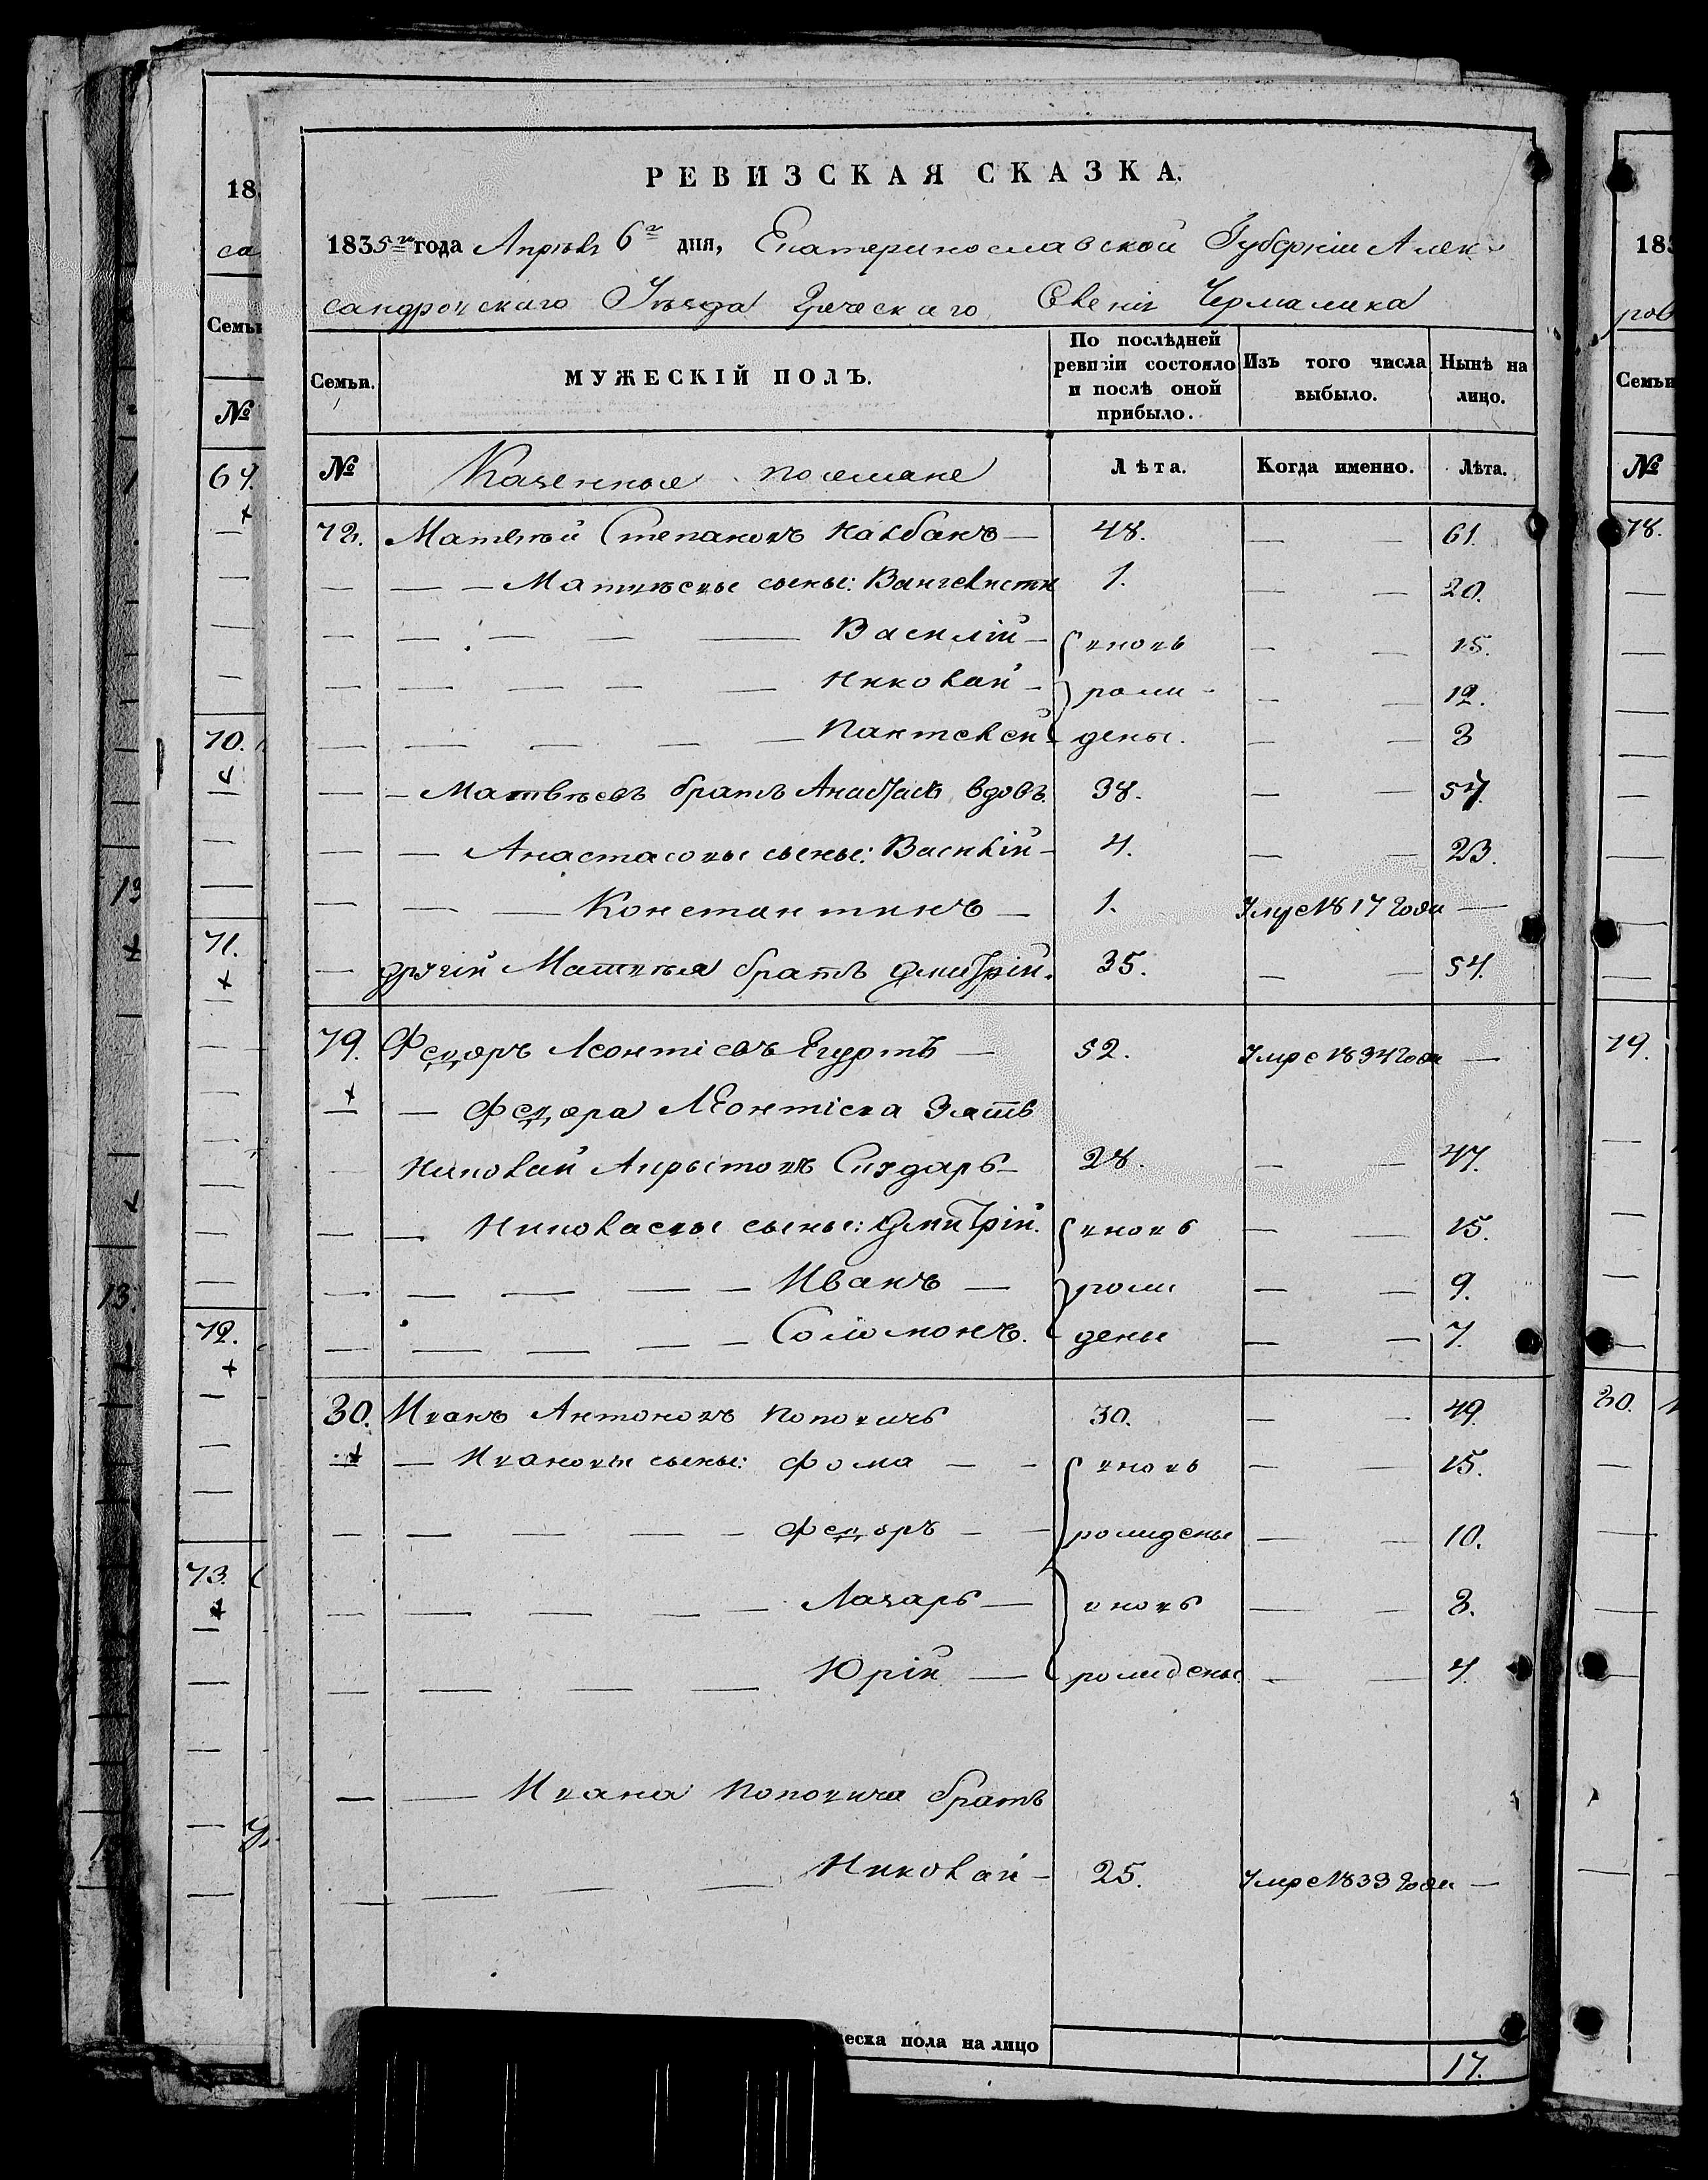 РЕВИЗСКАЯ СКАЗКА.
1835го года Апрѣля 6го дня, Екатеринославской Губерніи Алек-
сандровскаго Уѣзда Греческаго Селенія Чермалика
Семьи. МУЖЕСКІЙ ПОЛЪ. По послѣдней ревизіи состояло и послѣ оной прибыло. Изъ того числа выбыло. Нынѣ на лицо.
№ Казенные поселяне Лѣта. Когда именно. Лѣта.
Матвѣй Степановъ Налбанъ — 48. — — 61.
— — — Матвѣевы сыны: Вангелисти 1. — — 20.
— — — — — Василій — вновь — — 15.
— — — — — Николай — рожи- — — 12.
— — — — — Пантелей дены. — — 8
— — Матвѣевъ братъ Анастасъ вдовъ. 38. — — 57.
— — Анастасовы сыны: Василій — 4. — — 23.
— — — Константинъ — 1. Умре 1817 года —
— другій Матвѣя братъ Дмитрій. 35. — — 54.
79. Федоръ Леонтіевъ Егуртъ — 52. Умре 1834 года —
— — Федора Леонтіева Зять
— Николай Апрыстовъ Сиздаръ — 28. — — 47.
— — Николаевы сыны: Дмитрій. вновь — — 15.
— — — — — Иванъ — рожи — — 9.
— — — — — Соломонъ. дены — — 7.
80. Иванъ Антоновъ Поповичъ 30. — — 49.
— — Ивановы сыны: Фома — — вновь — — 15.
— — — — — Федоръ — — рожидены — — 10.
— — — — — Лазарь — вновь — — 8.
— — — — Юрій — рожидены. — — 4.
— — Ивана Поповича братъ
— — — — Николай — 25. Умре 1833 года —
еска пола на лицо 17.
18
са
Семьи
№
69.
70.
71.
72.
73.
13
13.
183
ров
Семьи
№
78.
79.
80.